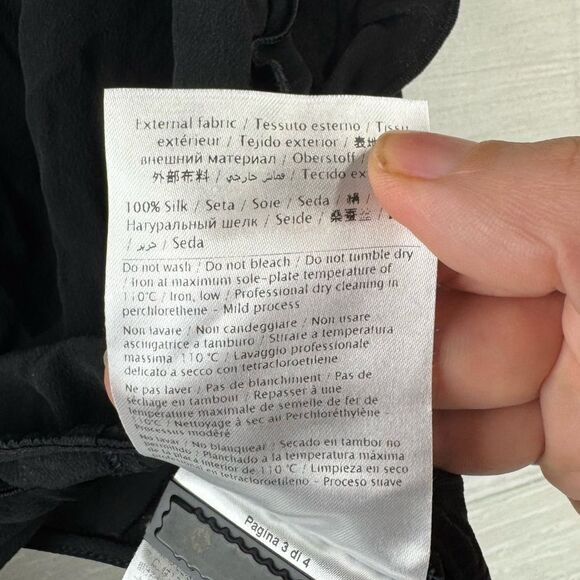 External fabric / Tessuto esterno / Tissu
extérieur / Tejido exterior / 表地
внешний материал / Oberstoff /
外部布料 / قماش خارجي / Tecido ex
100% Silk / Seta / Soie / Seda / 絹 /
Натуральный шелк / Seide / 桑蚕丝 /
/ حرير / Seda
Do not wash / Do not bleach / Do not tumble dry
/ Iron at maximum sole-plate temperature of
110°C / Iron, low / Professional dry cleaning in
perchlorethene - Mild process
Non lavare / Non candeggiare / Non usare
asciugatrice a tamburo / Stirare a temperatura
massima 110 °C / Lavaggio professionale
delicato a secco con tetracloroetilene
Ne pas laver / Pas de blanchiment / Pas de
séchage en tambour / Repasser à une
température maximale de semelle de fer de
110°C / Nettoyage à sec av Perchloréthylène -
Processus modéré
No lavar / No blanquear / Secado en tambor no
permitido / Planchado a la temperatura máxima
de la placa interior de 110°C / Limpieza en seco
en tetracloroetileno - Proceso suave
Pagina 3 di 4